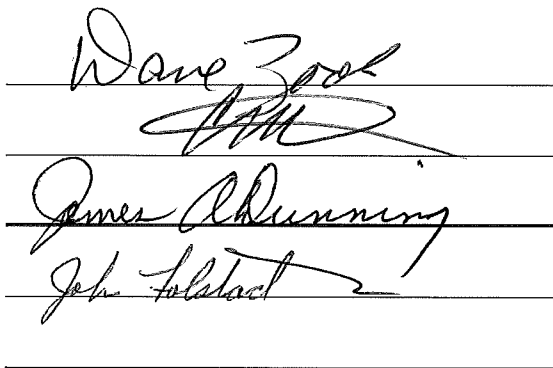 Dave Zook
James A Dunning
John Folstad